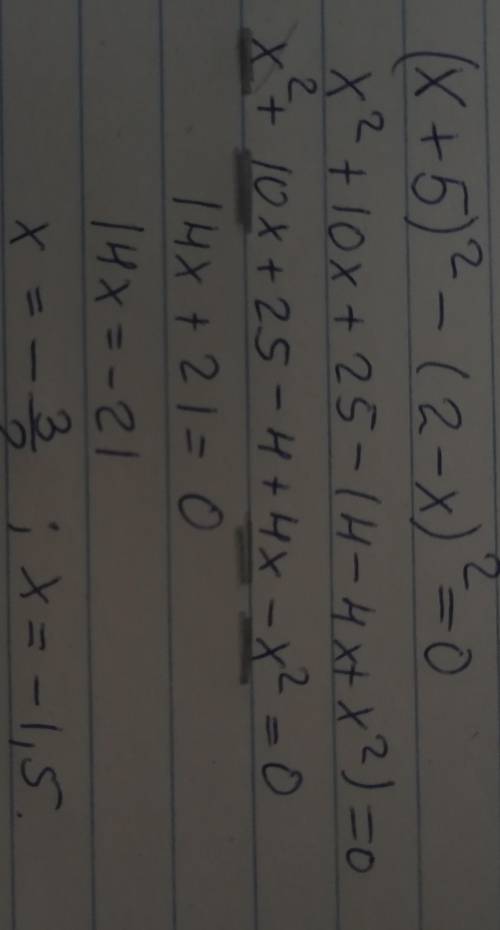 (x + 5)² - (2 - x)² = 0
x² + 10x + 25 - (4 - 4x + x²) = 0
x² + 10x + 25 - 4 + 4x - x² = 0
14x + 21 = 0
14x = -21
x = -3/2 ; x = -1,5.